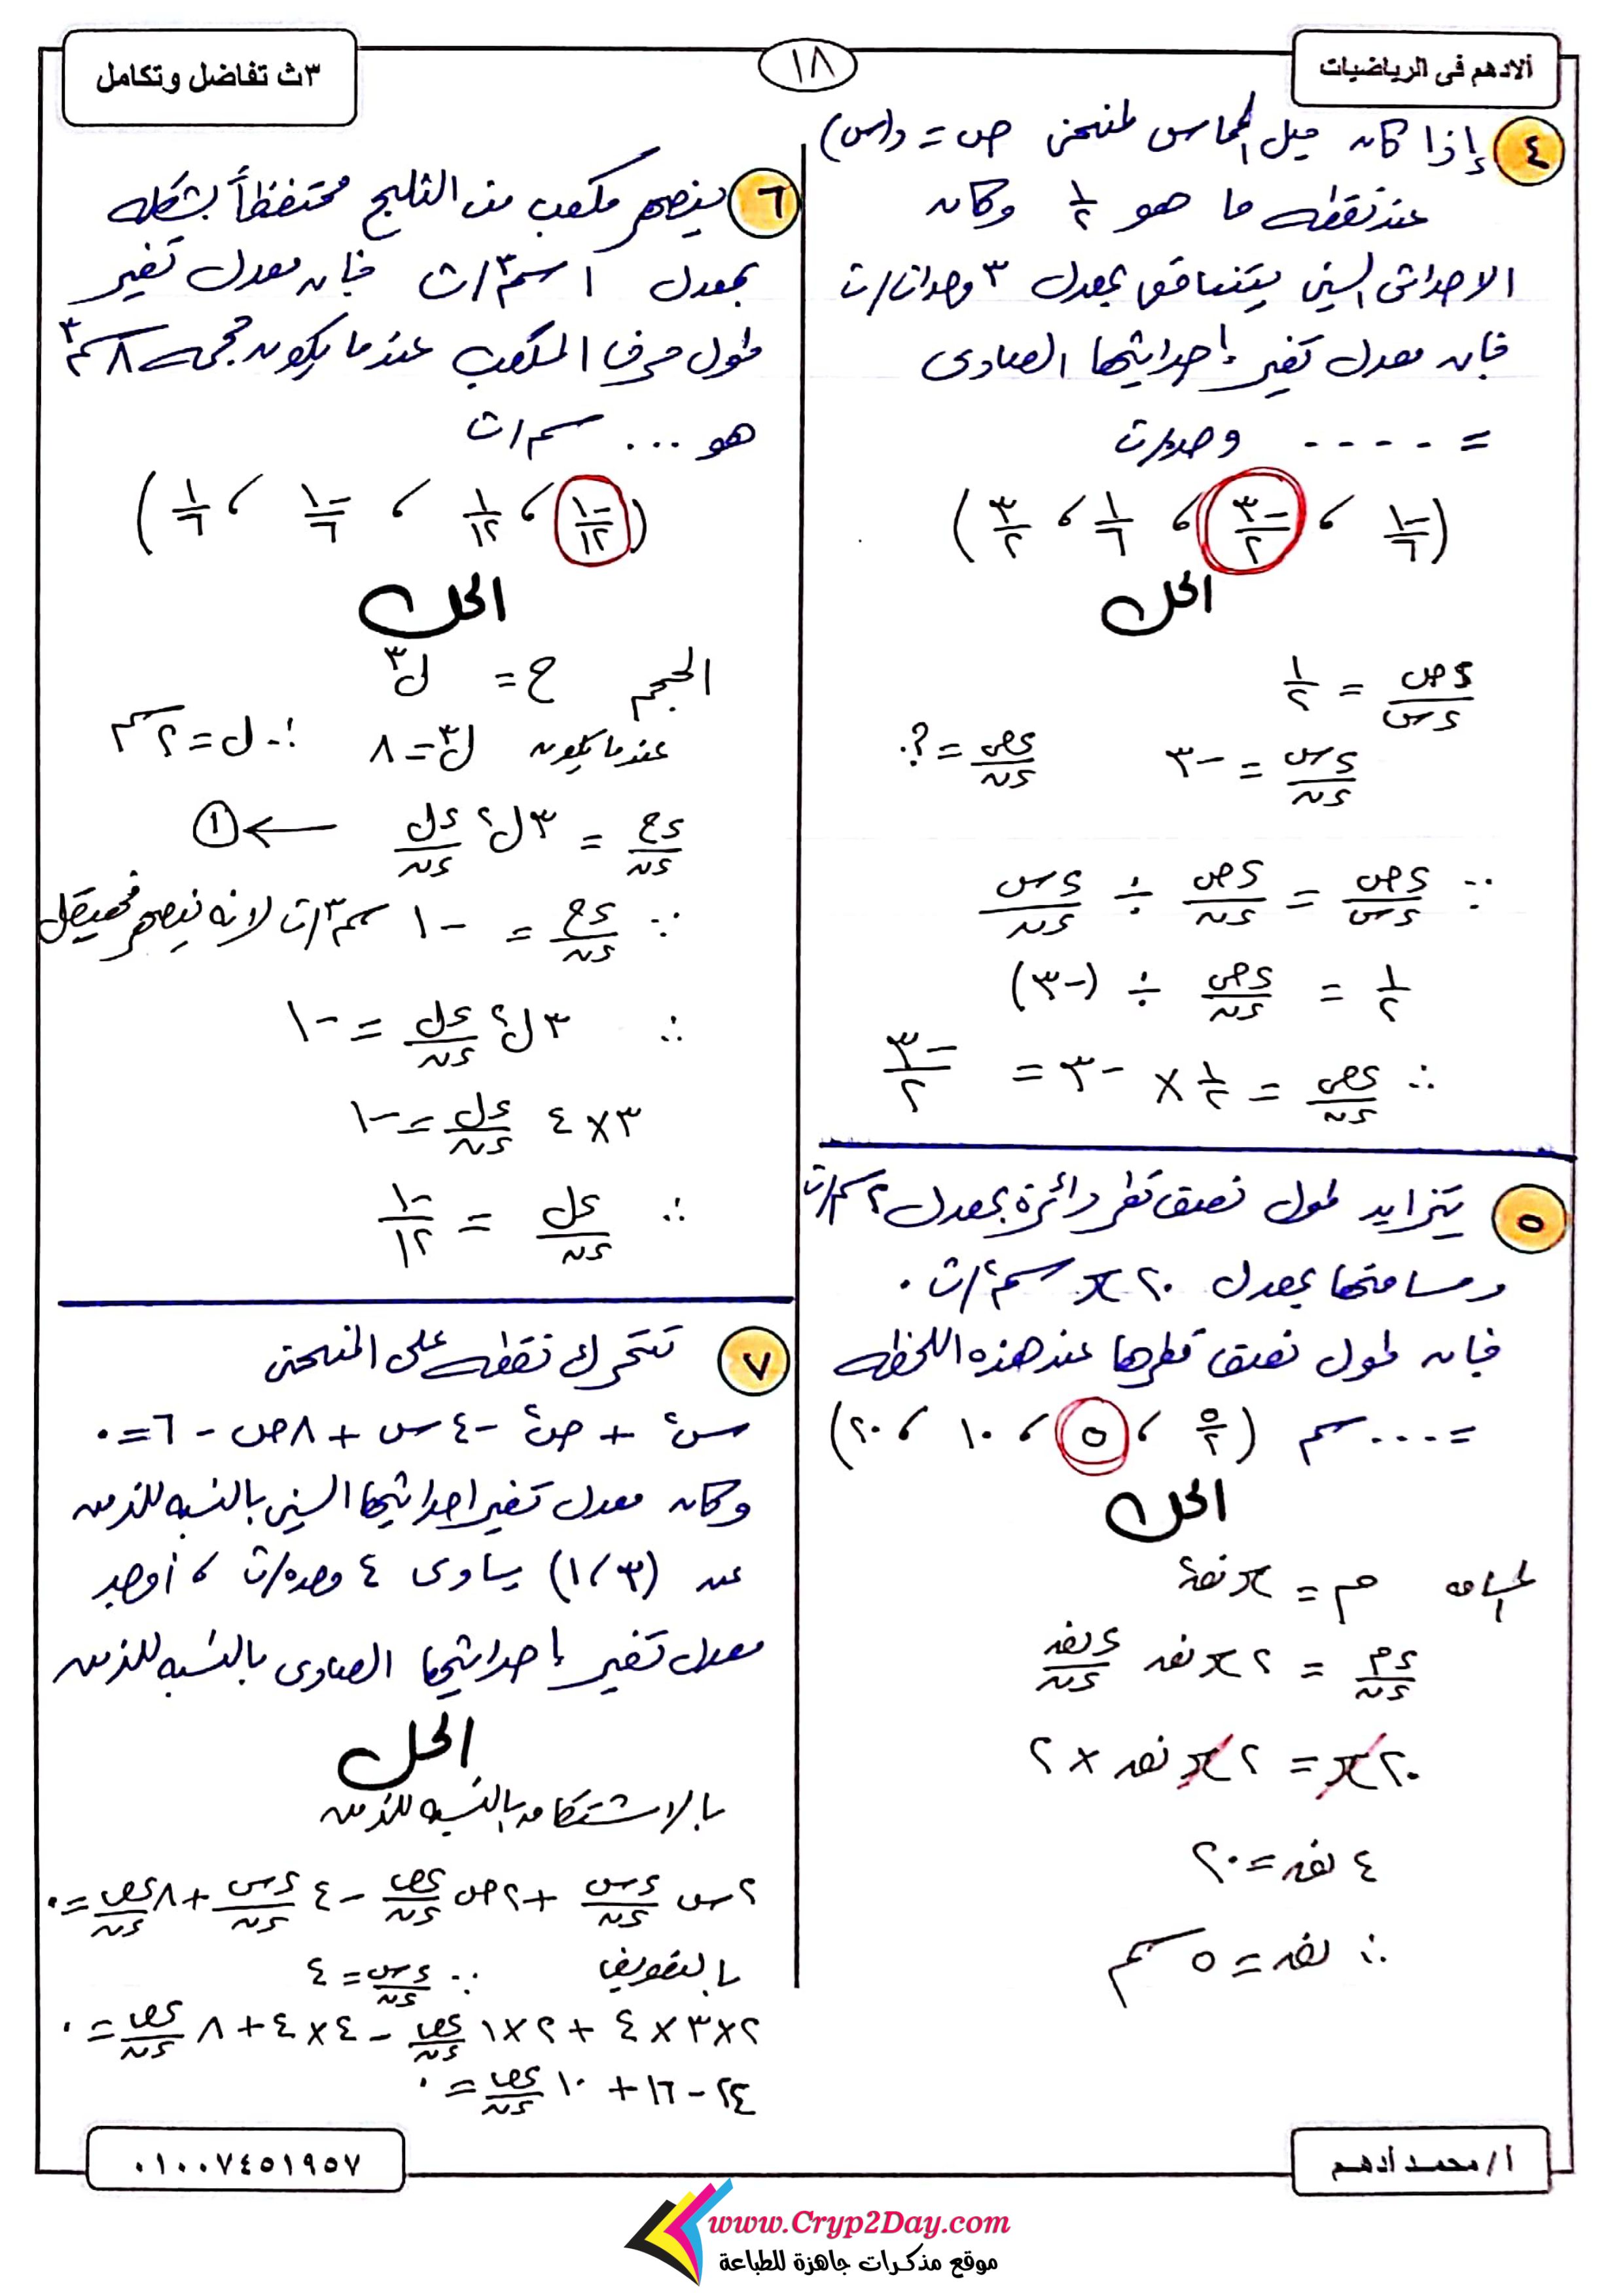 ألادهم فى الرياضيات
١٨
٣ث تفاضل وتكامل
٤ إذا كان ميل المماس لمنحنى ص = د(س)
عند نقطه ما هو ١/٢ وكان
الاحداثى السينى يتناقص بمعدل ٣ وحدات/ث
فإن معدل تغير إحداثيها الصادى
= ..... وحده/ث
(-١/٦ ، -٣/٢ ، ١/٦ ، ٣/٢)
الحل
ءص/ءس = ١/٢
ءس/ءن = -٣ ءص/ءن = ؟
∵ ءص/ءس = ءص/ءن ÷ ءس/ءن
١/٢ = ءص/ءن ÷ (-٣)
∴ ءص/ءن = ١/٢ × -٣ = -٣/٢
٥ يتزايد طول نصف قطر دائرة بمعدل ٢ سم/ث
ومساحتها بمعدل ٢٠ π سم²/ث .
فإن طول نصف قطرها عند هذه اللحظه
= .... سم (٥/٢ ، ٥ ، ١٠ ، ٢٠)
الحل
المساحه م = π نق²
ءم/ءن = ٢ π نق ءنق/ءن
٢٠ π = ٢ π نق × ٢
٤ نق = ٢٠
∴ نق = ٥ سم
٦ ينصهر مكعب من الثلج محتفظاً بشكله
بمعدل ١ سم³/ث فإن معدل تغير
طول حرف المكعب عندما يكون حجمه ٨ سم³
هو ... سم/ث
(-١/١٢ ، ١/١٢ ، -١/٦ ، ١/٦)
الحل
الحجم ح = ل³
عندما يكون ل³ = ٨ ∴ ل = ٢ سم
ءح/ءن = ٣ل² ءل/ءن ← ١
∵ ءح/ءن = -١ سم³/ث لانه ينصهر فحيقل
∴ ٣ل² ءل/ءن = -١
٣×٤ ءل/ءن = -١
∴ ءل/ءن = -١/١٢
٧ تتحرك نقطه على المنحنى
س² + ص² - ٤س + ٨ص - ٦ = ٠
وكان معدل تغير احداثيها السينى بالنسبه للزمن
عند (٣، ١) يساوى ٤ وحده/ث ، أوجد
معدل تغير إحداثيها الصادى بالنسبه للزمن
الحل
بالاشتقاق بالنسبه للزمن
٢س ءس/ءن + ٢ص ءص/ءن - ٤ ءس/ءن + ٨ ءص/ءن = ٠
بالتعويض ∵ ءس/ءن = ٤
٢×٣×٤ + ٢×١ ءص/ءن - ٤×٤ + ٨ ءص/ءن = ٠
٢٤ - ١٦ + ١٠ ءص/ءن = ٠
أ/ محمد أدهم
٠١٠٠٧٤٥١٩٥٧
www.Cryp2Day.com
موقع مذكرات جاهزة للطباعة